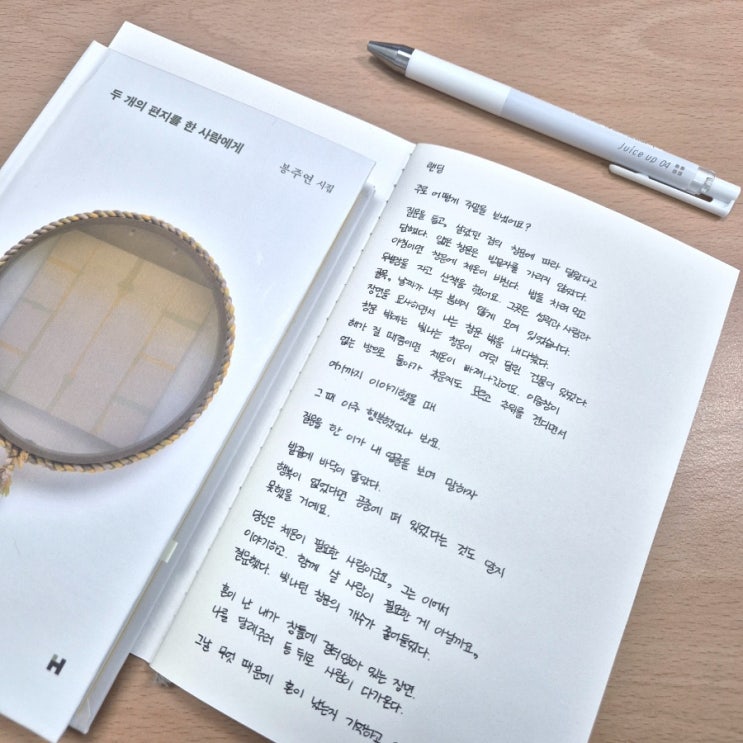 두 개의 편지를 한 사람에게
봉주연 시집
H
Juice up 04
랜딩
주로 어떻게 주말을 보냈어요?
질문을 듣고, 살았던 집의 창문에 따라 달랐다고
답했다. 없는 창문은 방문자를 가리지 않았다.
아침이면 창문에 체온이 비친다. 밥을 차려 먹고
을 지고 산책을 했어요. 그곳은 성곽과 사람과
골목, 날씨가 너무 붐비지 않게 모여 있었습니다.
장면을 묘사하면서 나는 창문 밖을 내다봤다.
창문 밖에는 빛나는 창문이 여럿 달린 건물이 있었다.
해가 질 때쯤이면 체온이 빠져나갔어요. 이음창이
없는 방으로 돌아가 추운지도 모르고 추위를 견디면서
여기까지 이야기했을 때
그때 아주 행복했었나 봐요.
질문을 한 이가 내 얼굴을 보며 말하자
발끝에 바닥이 닿았다.
행복이 없었다면 공중에 떠 있었다는 것도 알지
못했을 거예요.
당신은 체온이 필요한 사람이군요, 그는 이어서
이야기하고. 함께 살 사람이 필요한 게 아닐까요,
질문했다. 빛나던 창문의 개수가 줄어들었다.
혼이 난 내가 창틀에 걸터앉아 있는 장면.
나를 달래주러 등 뒤로 사람이 다가온다.
그날 무엇 때문에 혼이 났는지 기억하고